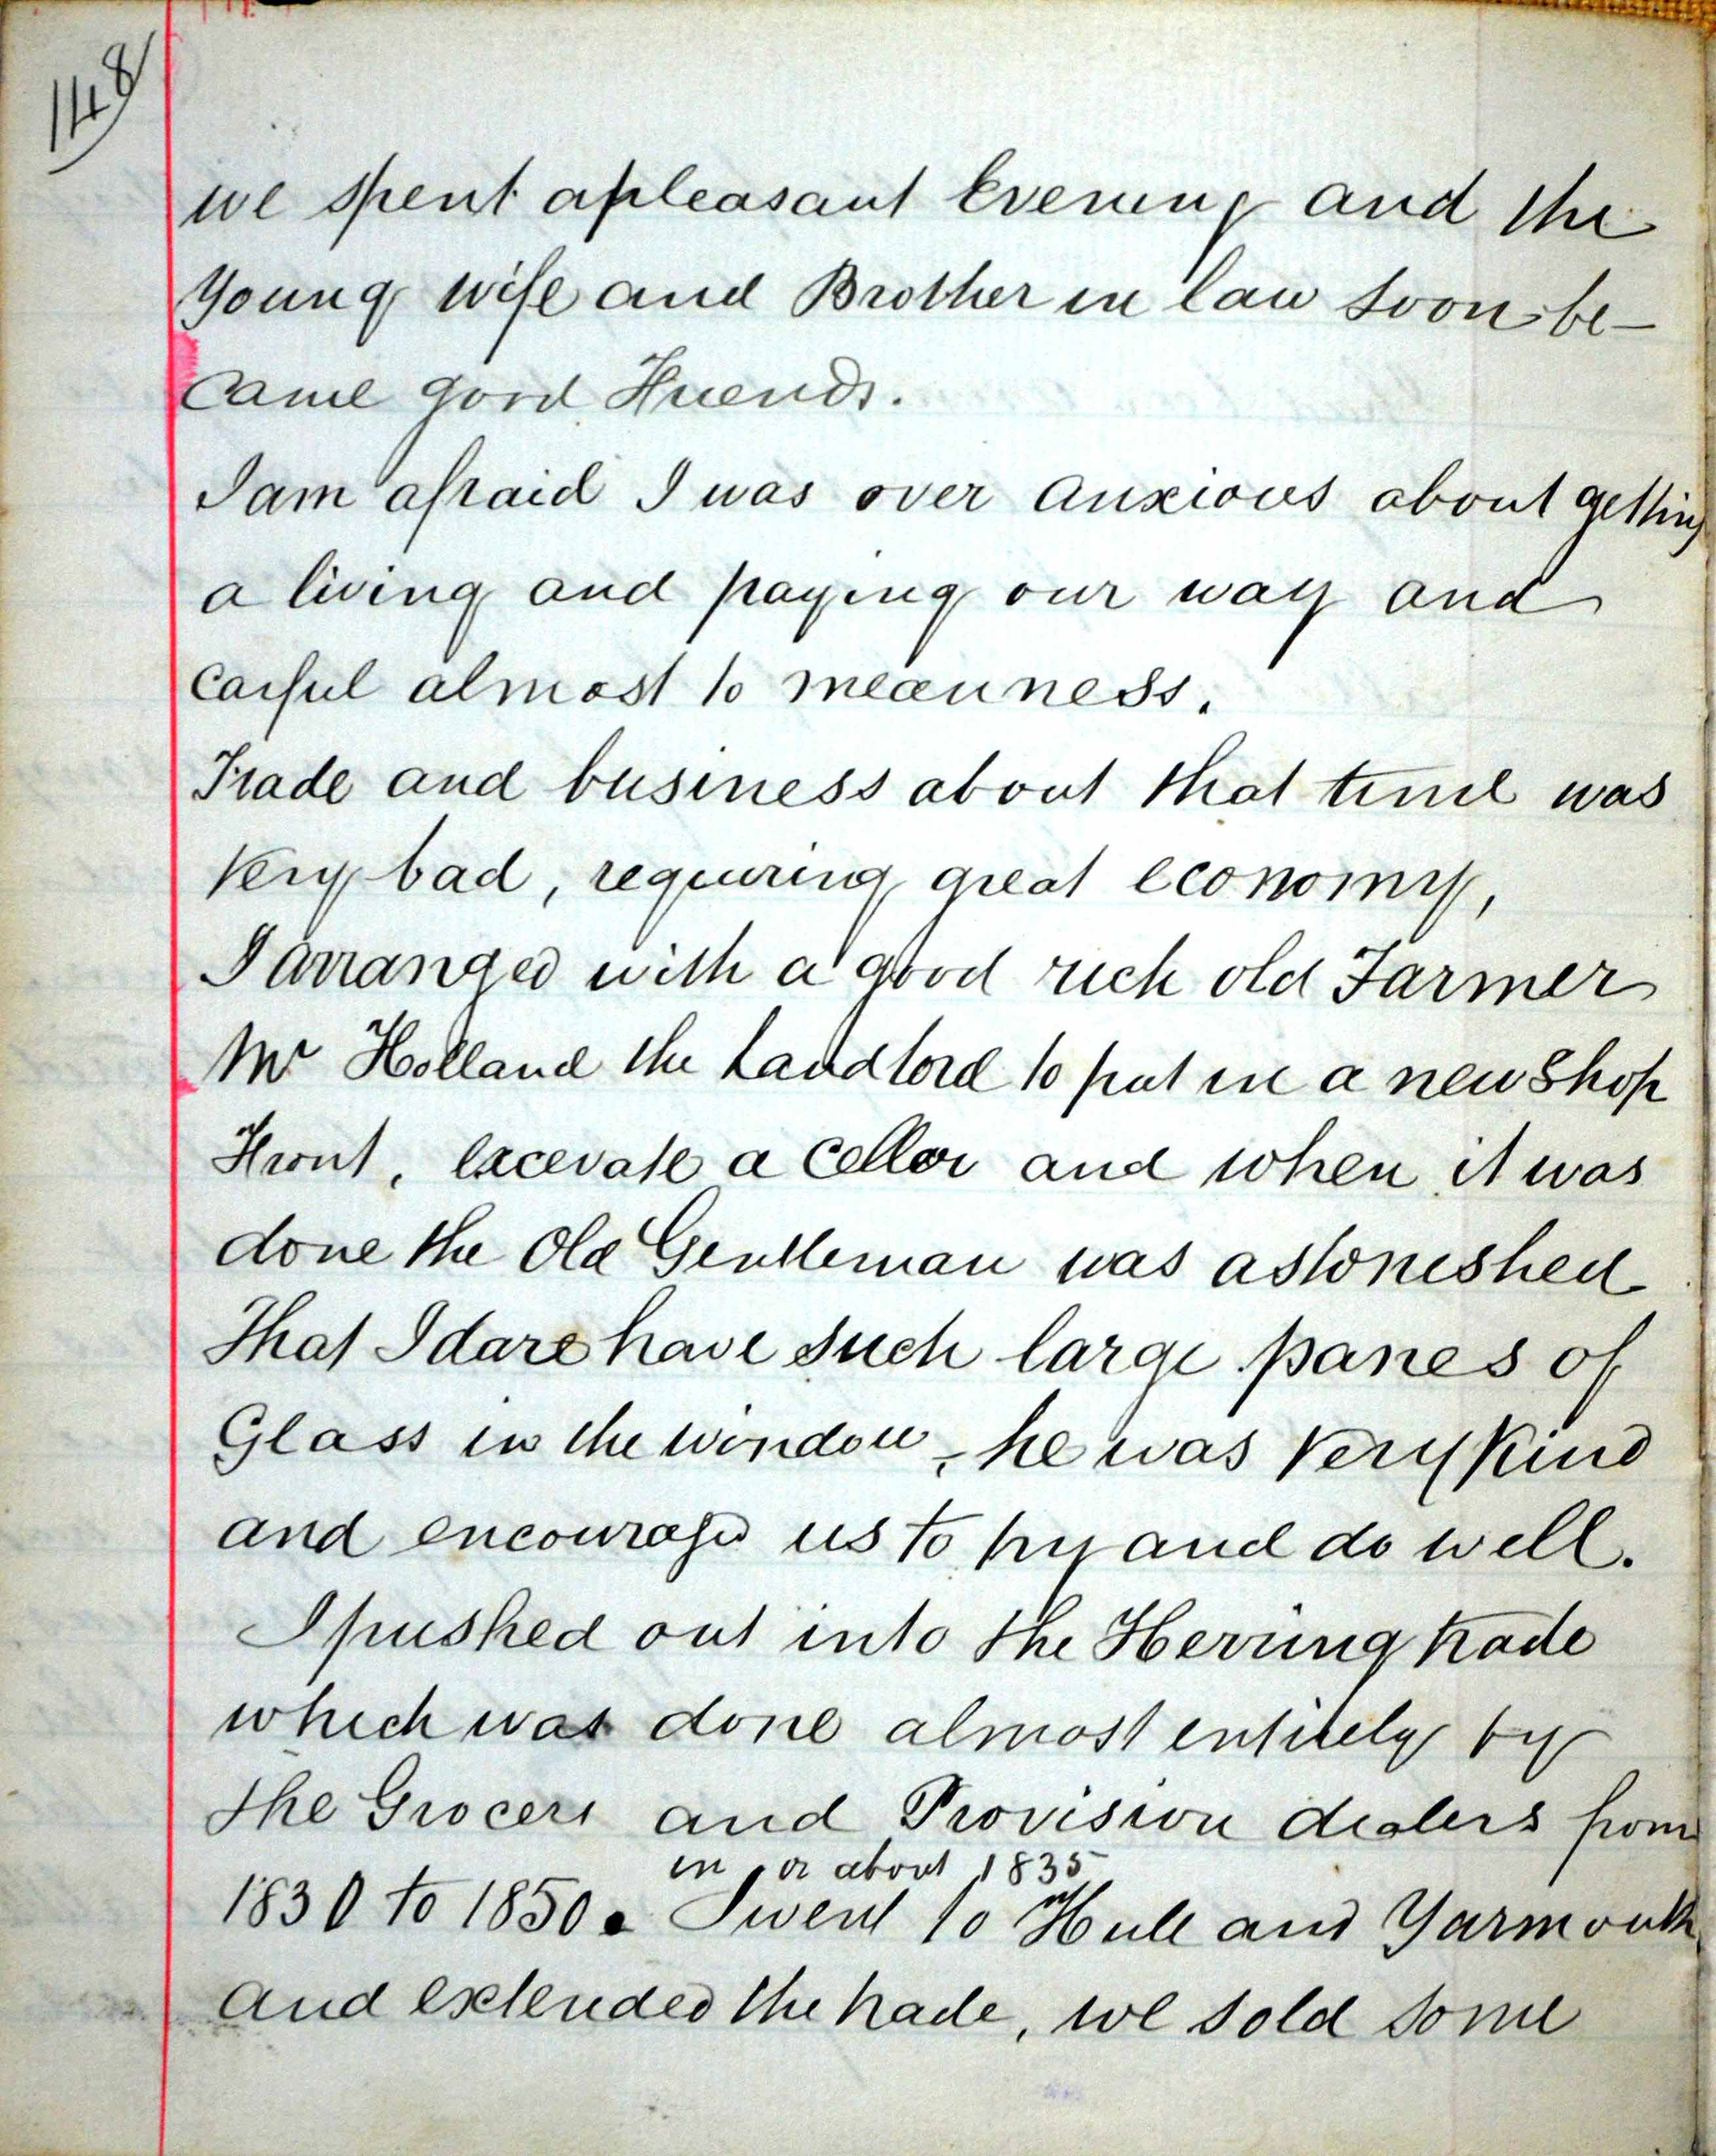 148
we spent a pleasant Evening and the
Young wife and Brother in law soon be-
came good Friends.
I am afraid I was over anxious about getting
a living and paying our way and
carful almost to meanness.
Trade and business about that time was
very bad, requiring great economy,
I arranged with a good rich old Farmer
Mr Holland the Landlord to put in a new Shop
Front, excevate a cellar and when it was
done the Old Gentleman was astonished
That I dare have such large panes of
Glass in the window, he was very kind
and encouraged us to try and do well.
I pushed out into the Herring trade
which was done almost entirely by
the Grocers and Provision dealers from
in or about 1835
1830 to 1850. I went to Hull and Yarmouth
and extended the trade, we sold some